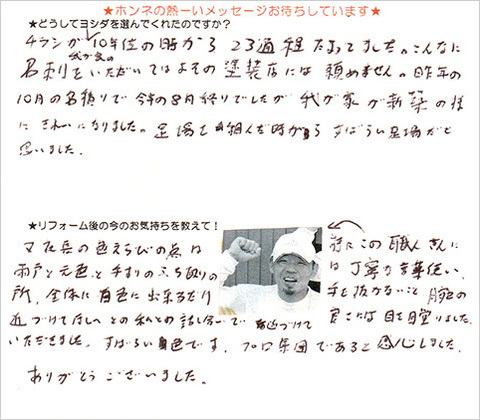 ★ホンネの熱ーいメッセージお待ちしています★
★どうしてヨシダを選んでくれたのですか?
チラシが10年位の時から23通程たまってました。こんなに
我が家の
名刺をいただいてはよその塗装店には頼めません。昨年の
10月の名残りで今年の8月終りでしたが我が家が新築の様
にきれいになりました。足場を組んだ時からすばらしい足場だと
思いました。
★リフォーム後の今のお気持ちを教えて!
又社長の色えらびの点は
雨戸と元色と手すりのふち取りの
所、全体に白色に出来るだけ
近づけてほしいとの私との話し合いで 近づけて
いただきました。すばらしい白色です。プロ集団であると感心しました。
ありがとうございました。
特にこの職人さんに
は丁寧な言葉使い、
手を抜かないこと 腕の
良さには目を瞠りました。